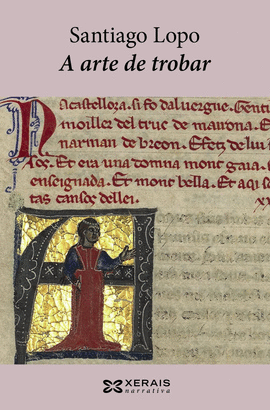 Santiago Lopo
A arte de trobar
Nacastellora. si fo daluergne. Genti
moiller del truc de mairona. E
narman de breon. E fetz de lui
Et era una domna mout gaia.
enseignada. Et mout bella. Et aqui
tas cansos dellei.
XERAIS
narrativa